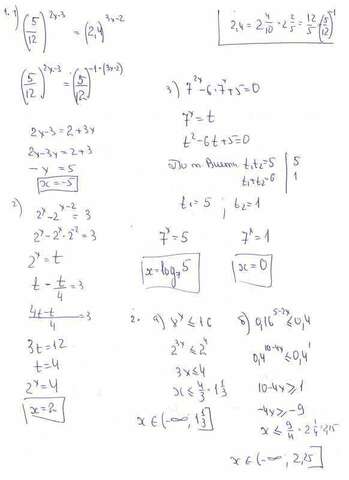 1. 1) (5/12)^(2x-3) = (2,4)^(3x-2)
2,4 = 2 4/10 = 2 2/5 = 12/5 = (5/12)^-1
(5/12)^(2x-3) = (5/12)^(-1·(3x-2))
2x-3 = 2+3x
2x-3x = 2+3
-x = 5
x = -5
2) 2^x - 2^(x-2) = 3
2^x - 2^x · 2^-2 = 3
2^x = t
t - t/4 = 3
(4t-t)/4 = 3
3t = 12
t = 4
2^x = 4
x = 2
3) 7^(2x) - 6·7^x + 5 = 0
7^x = t
t² - 6t + 5 = 0
По т. Виета t₁t₂ = 5 | 5
t₁+t₂ = 6 | 1
t₁ = 5 ; t₂ = 1
7^x = 5 7^x = 1
x = log₇5 x = 0
2. а) 8^x ≤ 16
2^(3x) ≤ 2^4
3x ≤ 4
x ≤ 4/3 = 1 1/3
x ∈ (-∞, 1 1/3]
б) 0,16^(5-2x) ≤ 0,4
0,4^(10-4x) ≤ 0,4^1
10-4x ≥ 1
-4x ≥ -9
x ≤ 9/4 = 2 1/4 = 2,25
x ∈ (-∞, 2,25]